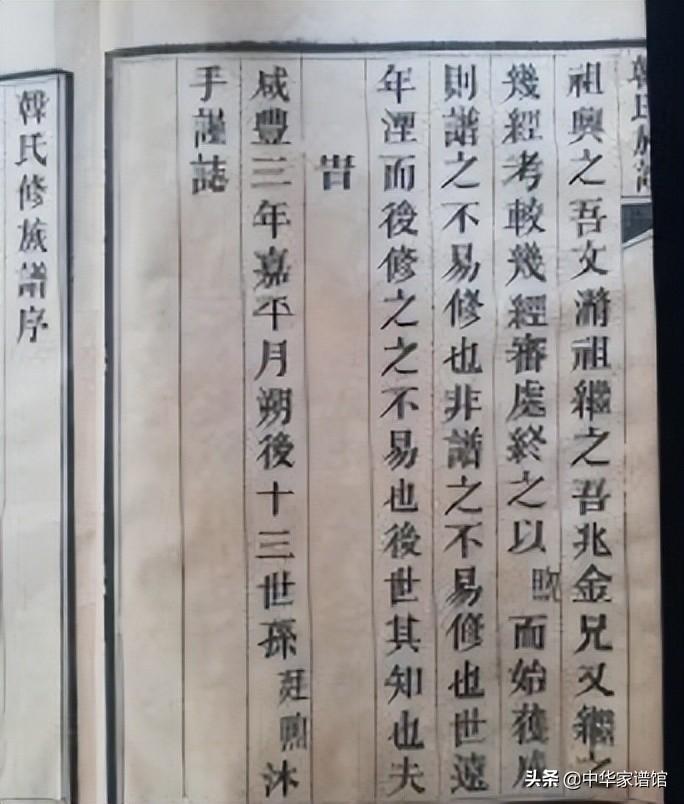 韓氏族譜
祖興之吾文瀞祖繼之吾兆金兄又繼之
幾經考較幾經審處終之以而始獲成
則譜之不易修也非譜之不易修也世遠
年湮而後修之之不易也後世其知也夫
旹
咸豐三年嘉平月朔後十三世孫沐
手謹誌
韓氏修族譜序
头条 @中华家谱馆